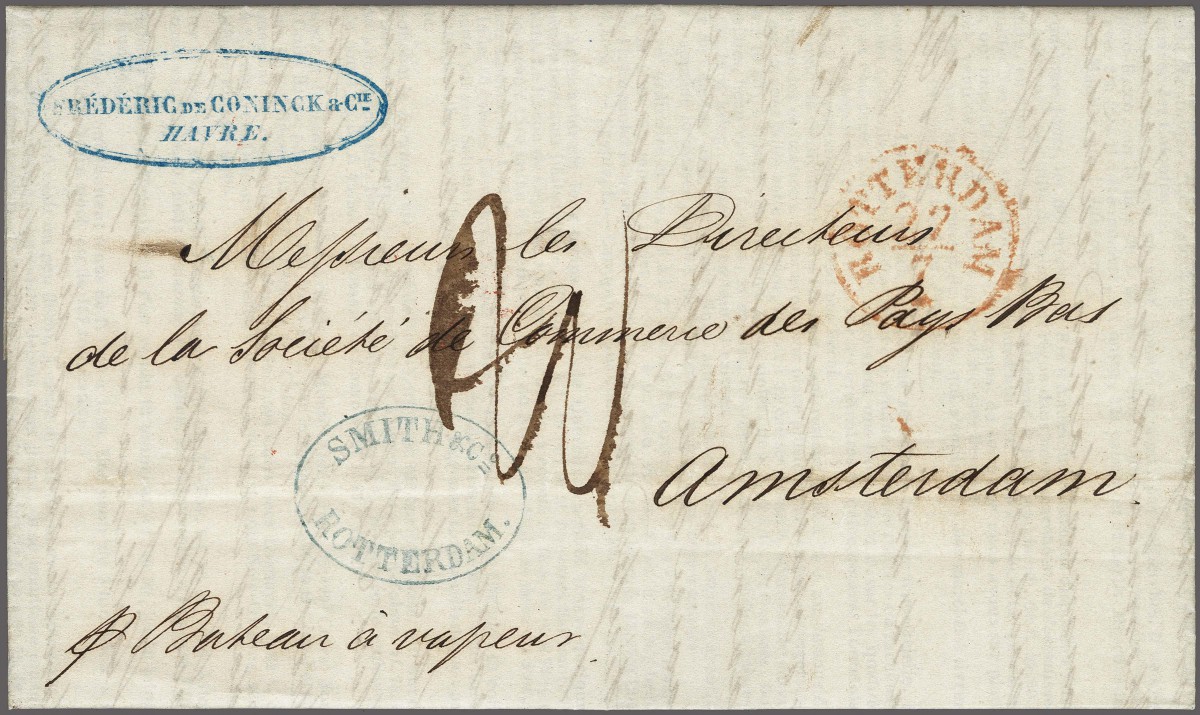 FRÉDÉRIC DE CONINCK & CIE
HAVRE.
ROTTERDAM
22
7
Messieurs les Directeurs
de la Société de Commerce des Pays Bas
SMITH & Co
ROTTERDAM.
Amsterdam
p Bateau à vapeur